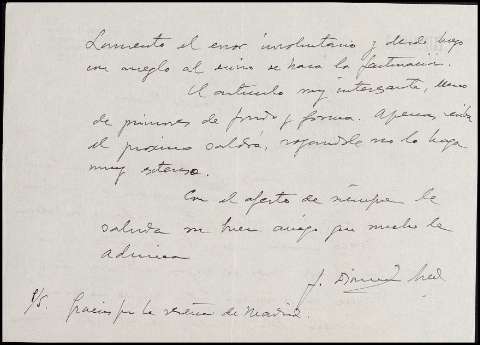 Lamento el error involuntario y desde luego
con arreglo al mismo se hará la facturación.
El artículo muy interesante, lleno
de primores de fondo y forma. Apenas reciba
el próximo saldrá, rogándole no lo haga
muy extenso.
Con el afecto de siempre le
saluda su buen amigo que mucho le
admira
J.
P/S. Gracias por la reseña de Madrid.